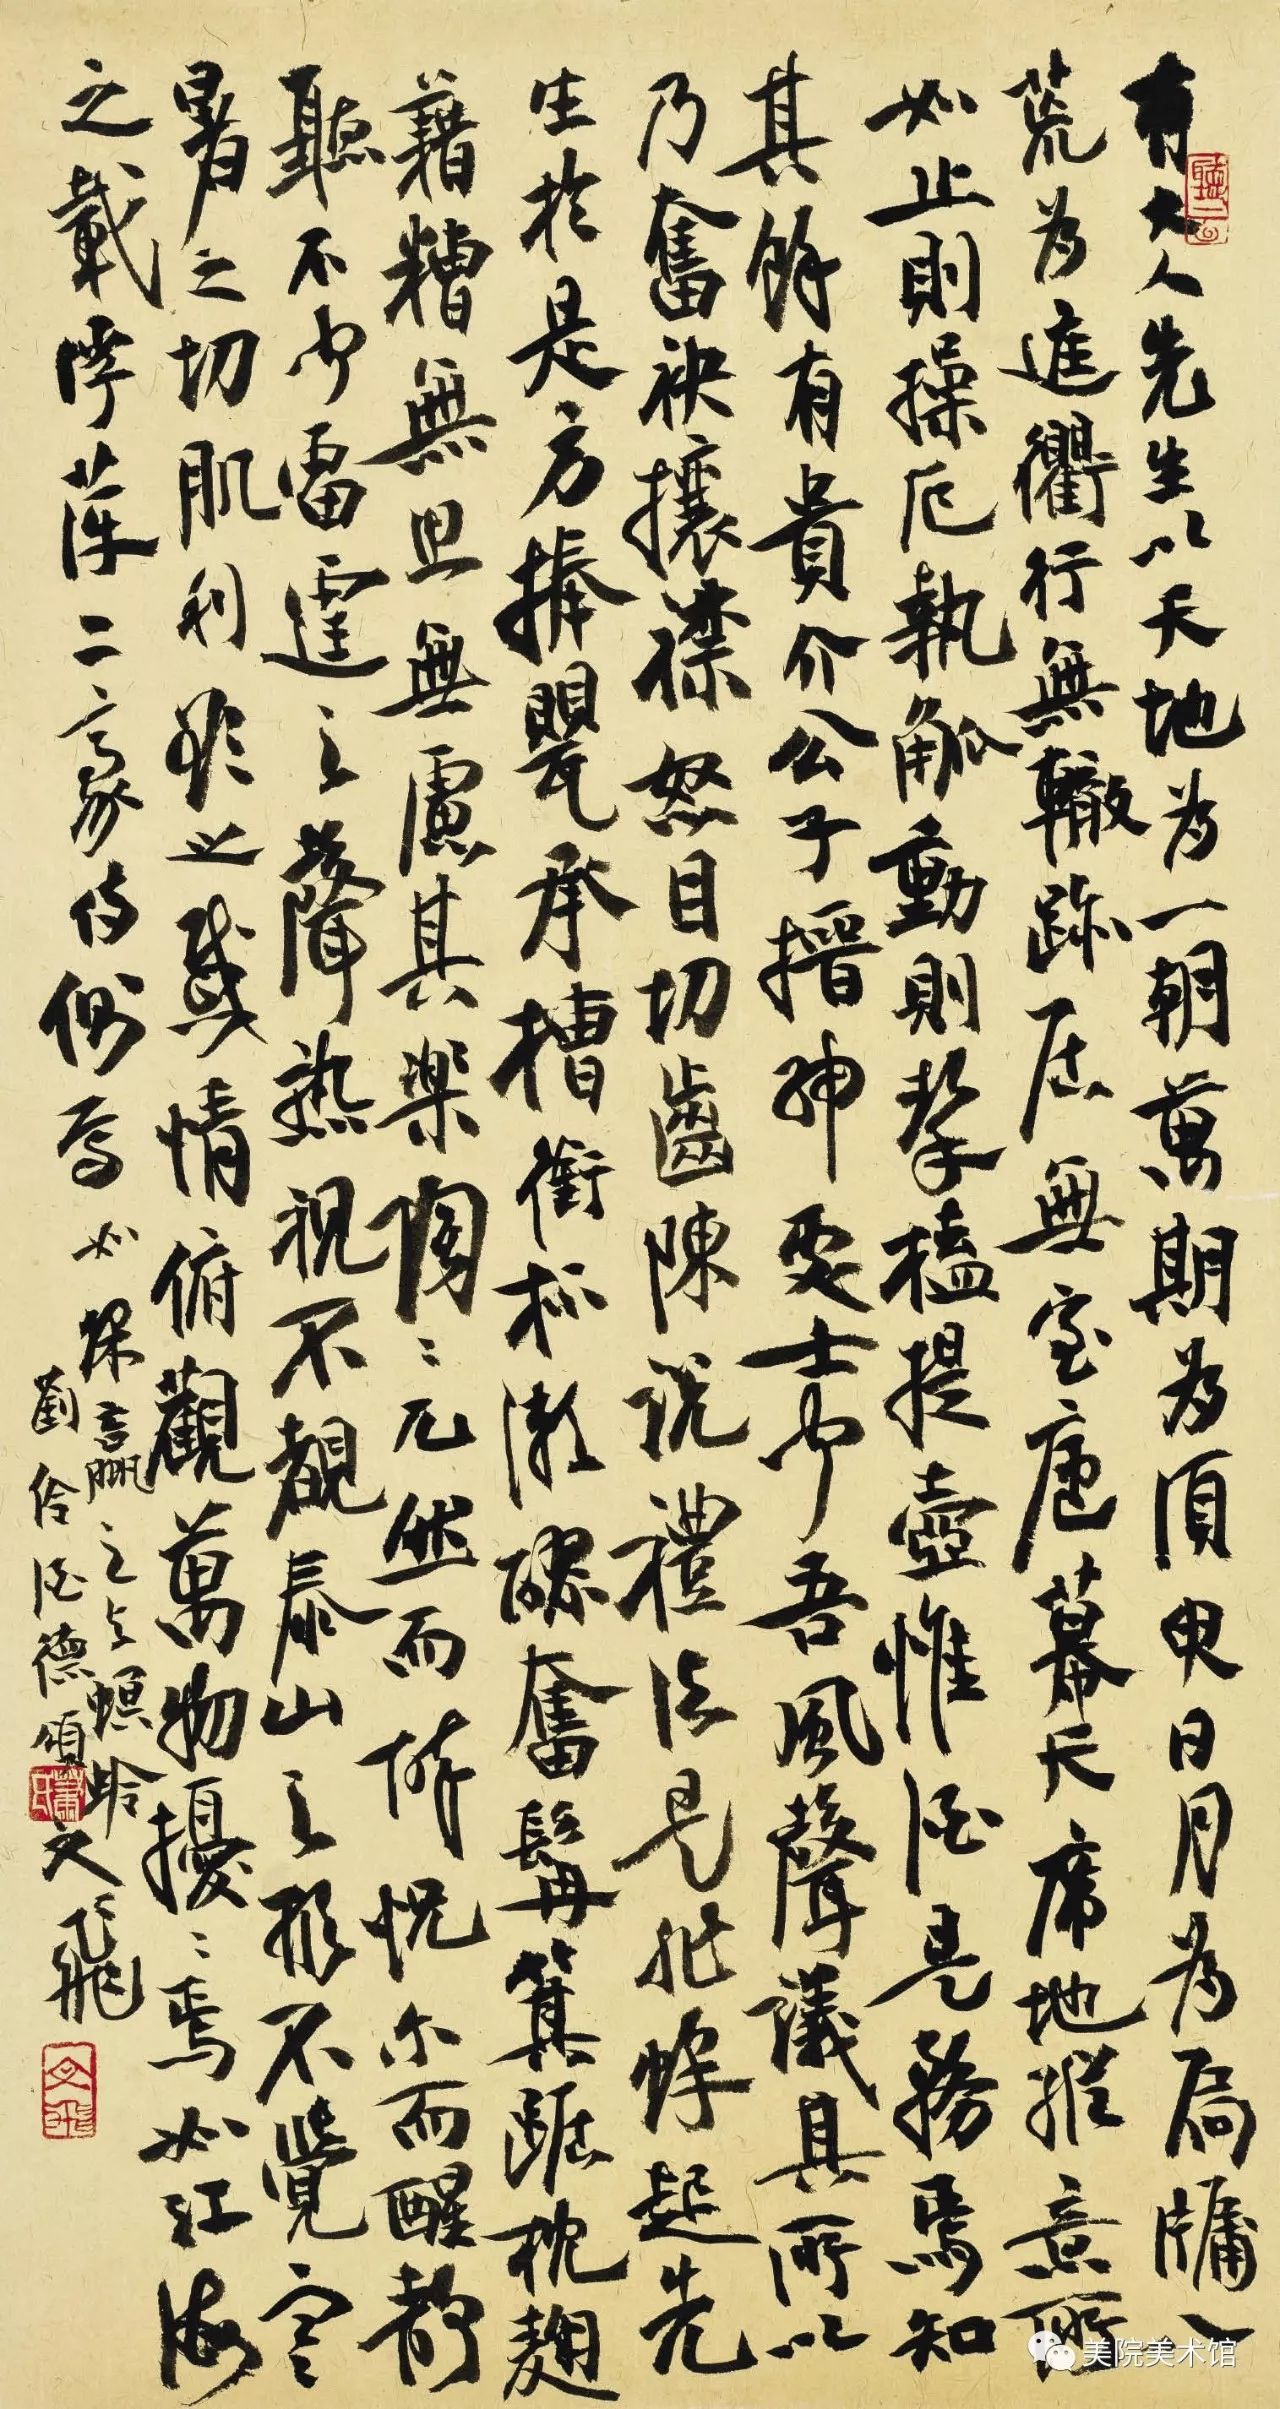 有大人先生以天地為一朝萬期為須臾日月為扃牖八
荒為進衢行無轍跡居無室廬幕天席地縱意所
如止則操卮執觚動則挈榼提壺惟酒是務焉知
其餘有貴介公子搢紳處士聞吾風聲議其所以
乃奮袂攘襟怒目切齒陳說禮法是非蜂起先
生於是方捧罌承槽銜杯漱醪奮髯箕踞枕麴
藉糟無思無慮其樂陶々兀然而醉怳尔而醒靜
聽不聞雷霆之聲熟視不覩泰山之形不覺寒
暑之切肌利欲之感情俯觀萬物擾々焉如江海
之載浮萍二豪侍側焉如蜾蠃之與螟蛉
劉伶酒德頌 文飛
文飛
美院美术馆